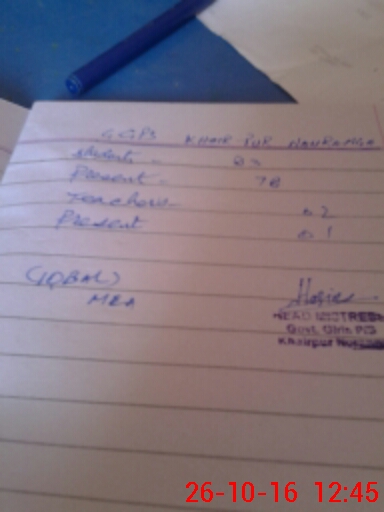 GGPS KHAIR PUR NAURANGA
Students - 83
Present - 78
Teachers - 02
Present 01
(IQBAL)
MEA
HEAD MISTRESS
Govt. Girls P/S
Khairpur
26-10-16 12:45